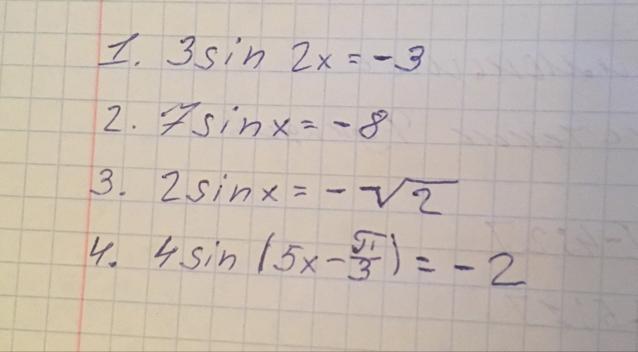 1. 3sin 2x = -3
2. 7sinx = -8
3. 2sinx = -√2
4. 4sin (5x - π/3) = -2